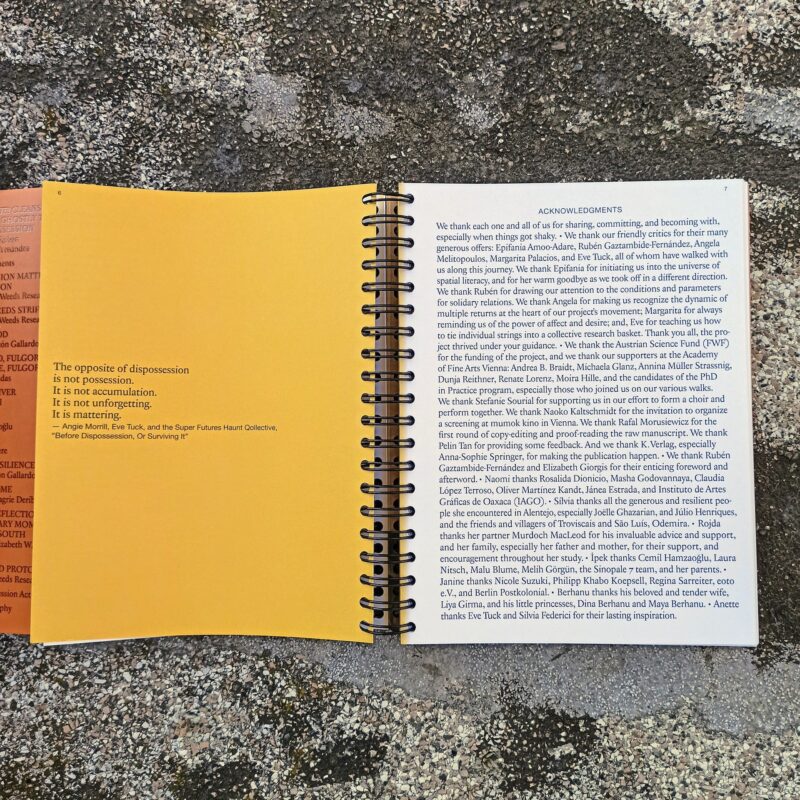 ION MATT
ON
Weeds Resea
EEDS STRIF
Weeds Resea
OD
ón Gallardo
O, FULGOR
E, FULGOR
das
VER
oğlu
ere
SILIENCE
OME
agrie Derib
EFLECTIO
ARY MOM
SOUTH
lizabeth W.
D PROTO
Weeds Resea
ession Act
phy
6
The opposite of dispossession
is not possession.
It is not accumulation.
It is not unforgetting.
It is mattering.
— Angie Morrill, Eve Tuck, and the Super Futures Haunt Qollective,
“Before Dispossession, Or Surviving It”
7
ACKNOWLEDGMENTS
We thank each one and all of us for sharing, committing, and becoming with,
especially when things got shaky. • We thank our friendly critics for their many
generous offers: Epifania Amoo-Adare, Rubén Gaztambide-Fernández, Angela
Melitopoulos, Margarita Palacios, and Eve Tuck, all of whom have walked with
us along this journey. We thank Epifania for initiating us into the universe of
spatial literacy, and for her warm goodbye as we took off in a different direction.
We thank Rubén for drawing our attention to the conditions and parameters
for solidary relations. We thank Angela for making us recognize the dynamic of
multiple returns at the heart of our project’s movement; Margarita for always
reminding us of the power of affect and desire; and, Eve for teaching us how
to tie individual strings into a collective research basket. Thank you all, the pro-
ject thrived under your guidance. • We thank the Austrian Science Fund (FWF)
for the funding of the project, and we thank our supporters at the Academy
of Fine Arts Vienna: Andrea B. Braidt, Michaela Glanz, Annina Müller Strassnig,
Dunja Reithner, Renate Lorenz, Moira Hille, and the candidates of the PhD
in Practice program, especially those who joined us on our various walks.
We thank Stefanie Sourial for supporting us in our effort to form a choir and
perform together. We thank Naoko Kaltschmidt for the invitation to organize
a screening at mumok kino in Vienna. We thank Rafal Morusiewicz for the
first round of copy-editing and proof-reading the raw manuscript. We thank
Pelin Tan for providing some feedback. And we thank K. Verlag, especially
Anna-Sophie Springer, for making the publication happen. • We thank Rubén
Gaztambide-Fernández and Elizabeth Giorgis for their enticing foreword and
afterword. • Naomi thanks Rosalida Dionicio, Masha Godovannaya, Claudia
López Terroso, Oliver Martínez Kandt, Jánea Estrada, and Instituto de Artes
Gráficas de Oaxaca (IAGO). • Sílvia thanks all the generous and resilient peo-
ple she encountered in Alentejo, especially Joëlle Ghazarian, and Júlio Henriques,
and the friends and villagers of Troviscais and São Luís, Odemira. • Rojda
thanks her partner Murdoch MacLeod for his invaluable advice and support,
and her family, especially her father and mother, for their support, and
encouragement throughout her study. • İpek thanks Cemil Hamzaoğlu, Laura
Nitsch, Malu Blume, Melih Görgün, the Sinopale 7 team, and her parents. •
Janine thanks Nicole Suzuki, Philipp Khabo Koepsell, Regina Sarreiter, eoto
e.V., and Berlin Postkolonial. • Berhanu thanks his beloved and tender wife,
Liya Girma, and his little princesses, Dina Berhanu and Maya Berhanu. • Anette
thanks Eve Tuck and Silvia Federici for their lasting inspiration.